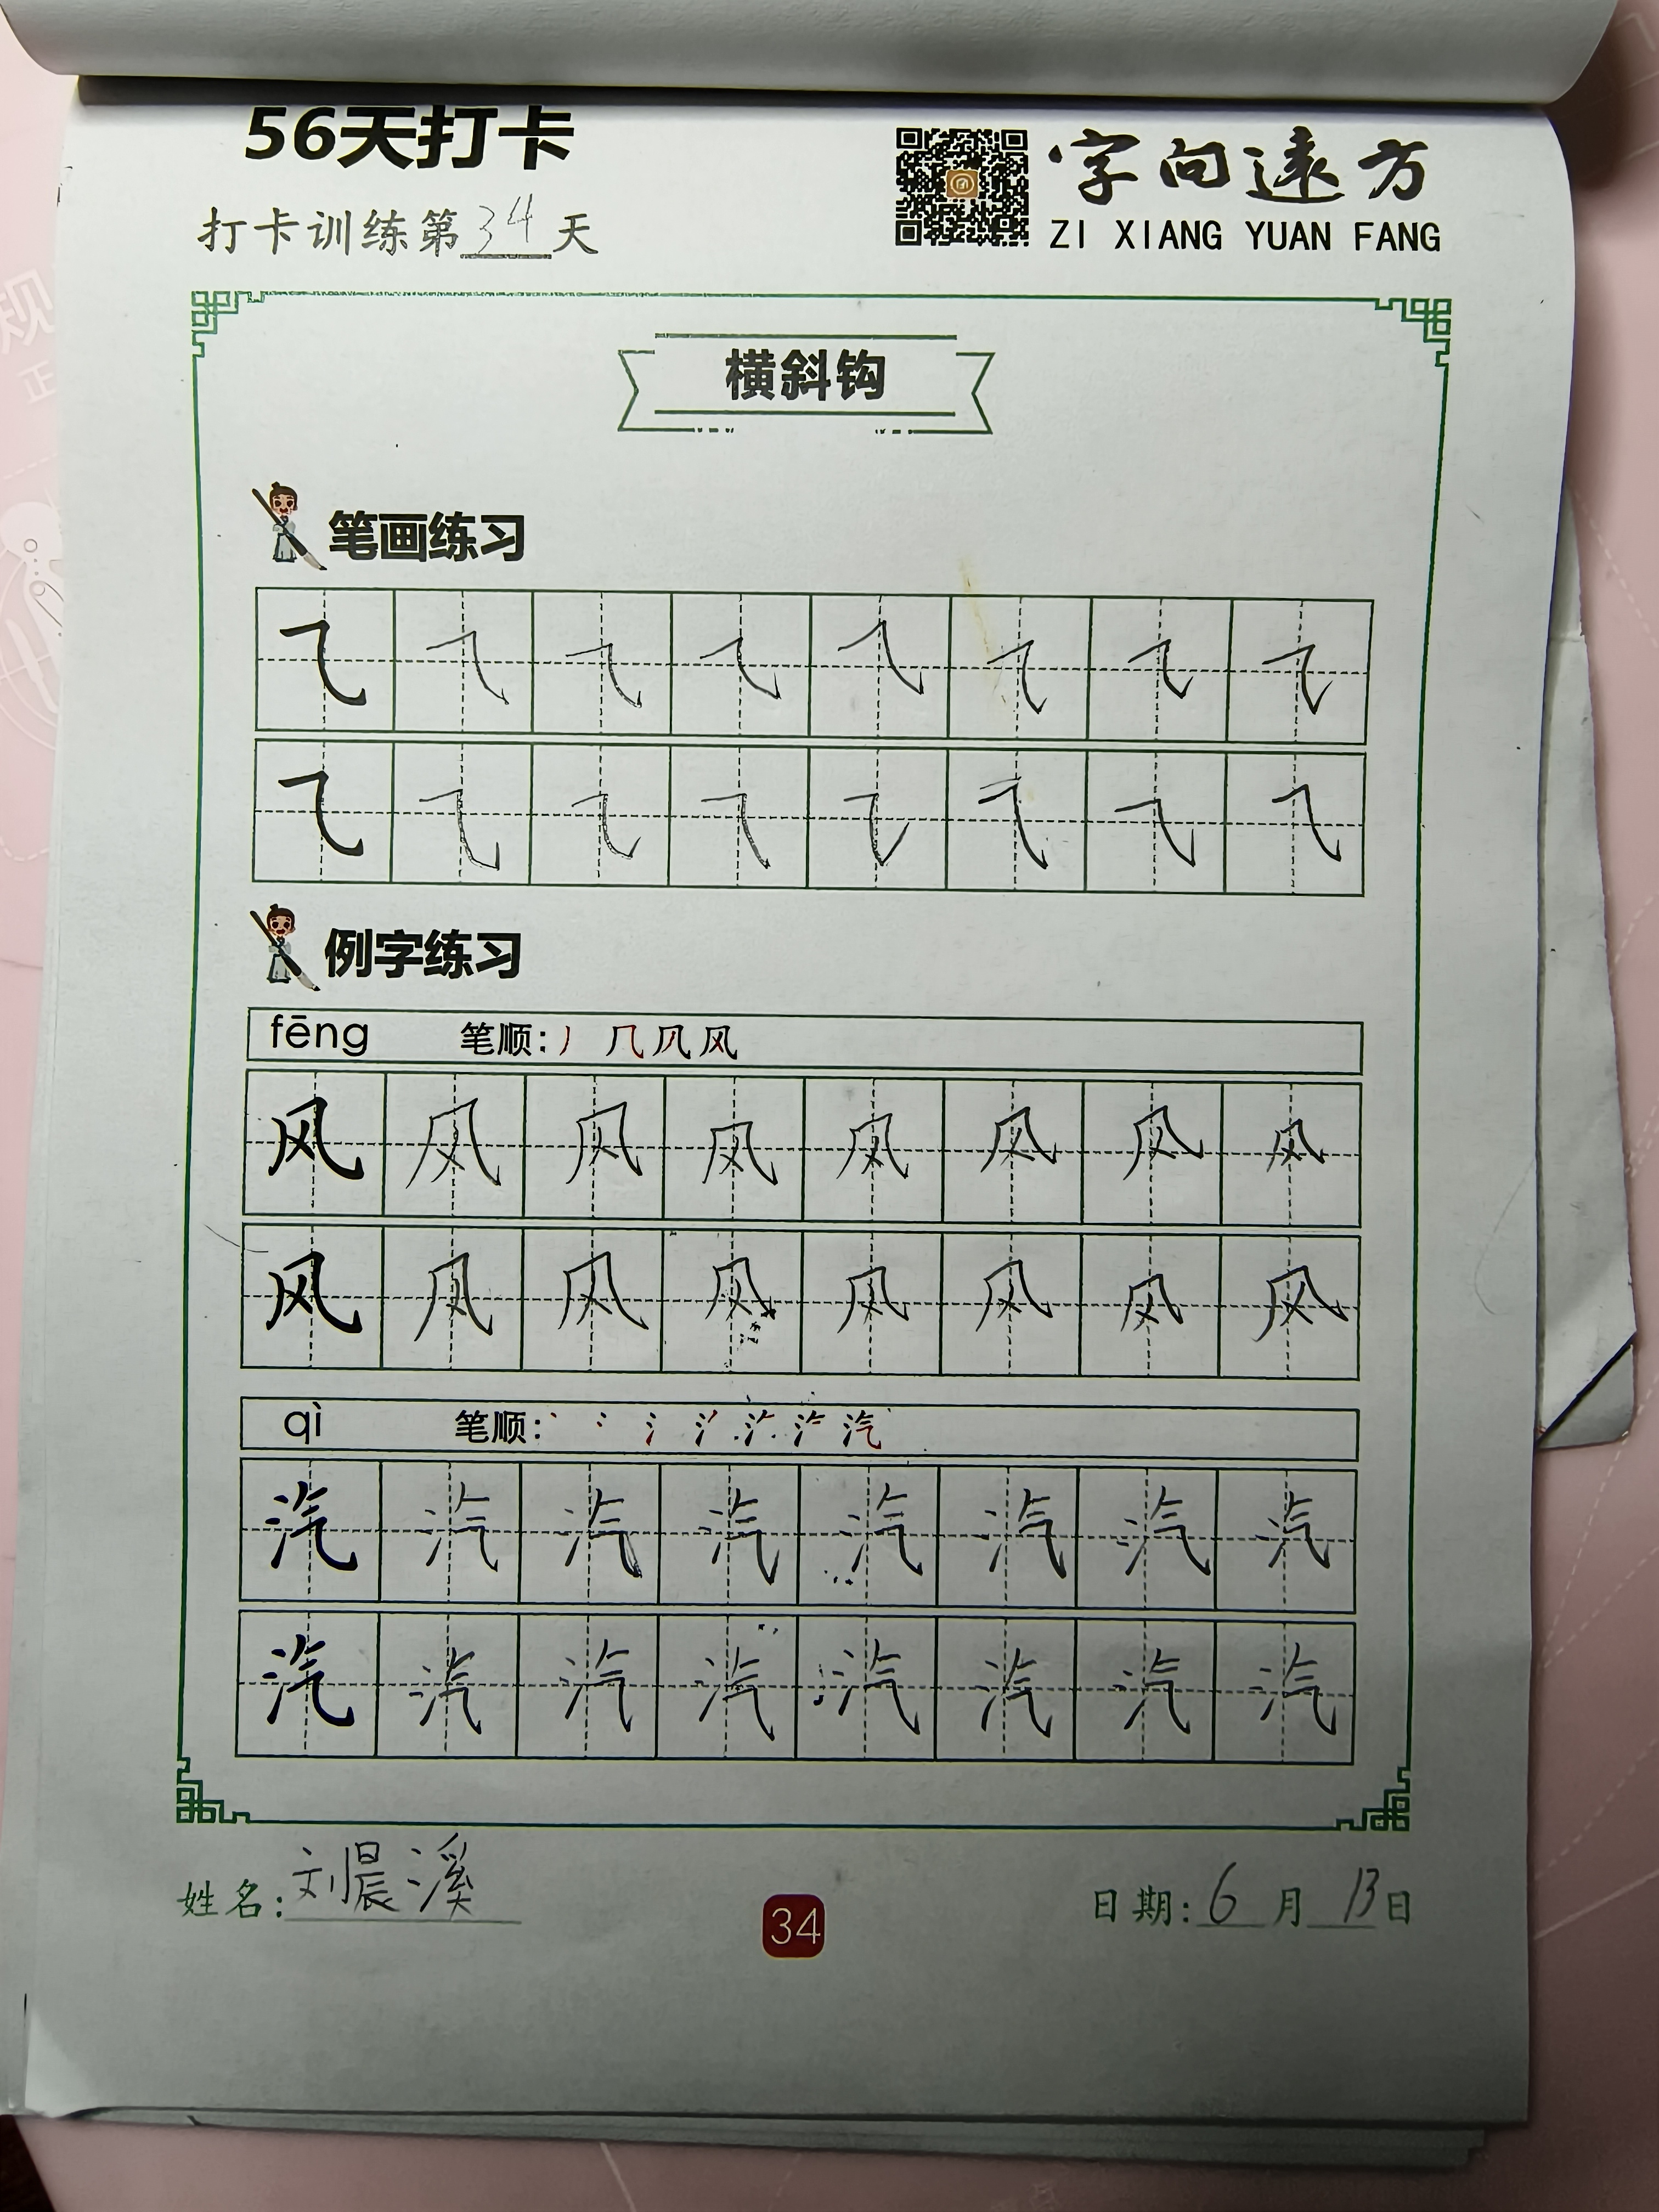 56天打卡
字向遠方
打卡训练第34天
ZI XIANG YUAN FANG
横斜钩
笔画练习
㇈ ㇈ ㇈ ㇈ ㇈ ㇈ ㇈ ㇈
㇈ ㇈ ㇈ ㇈ ㇈ ㇈ ㇈ ㇈
例字练习
fēng 笔顺: 丿 几 凡 风
风 风 风 风 风 风 风 风
风 风 风 风 风 风 风 风
qì 笔顺:
汽 汽 汽 汽 汽 汽 汽 汽
汽 汽 汽 汽 汽 汽 汽 汽
姓名: 刘晨溪
34
日期: 6月13日